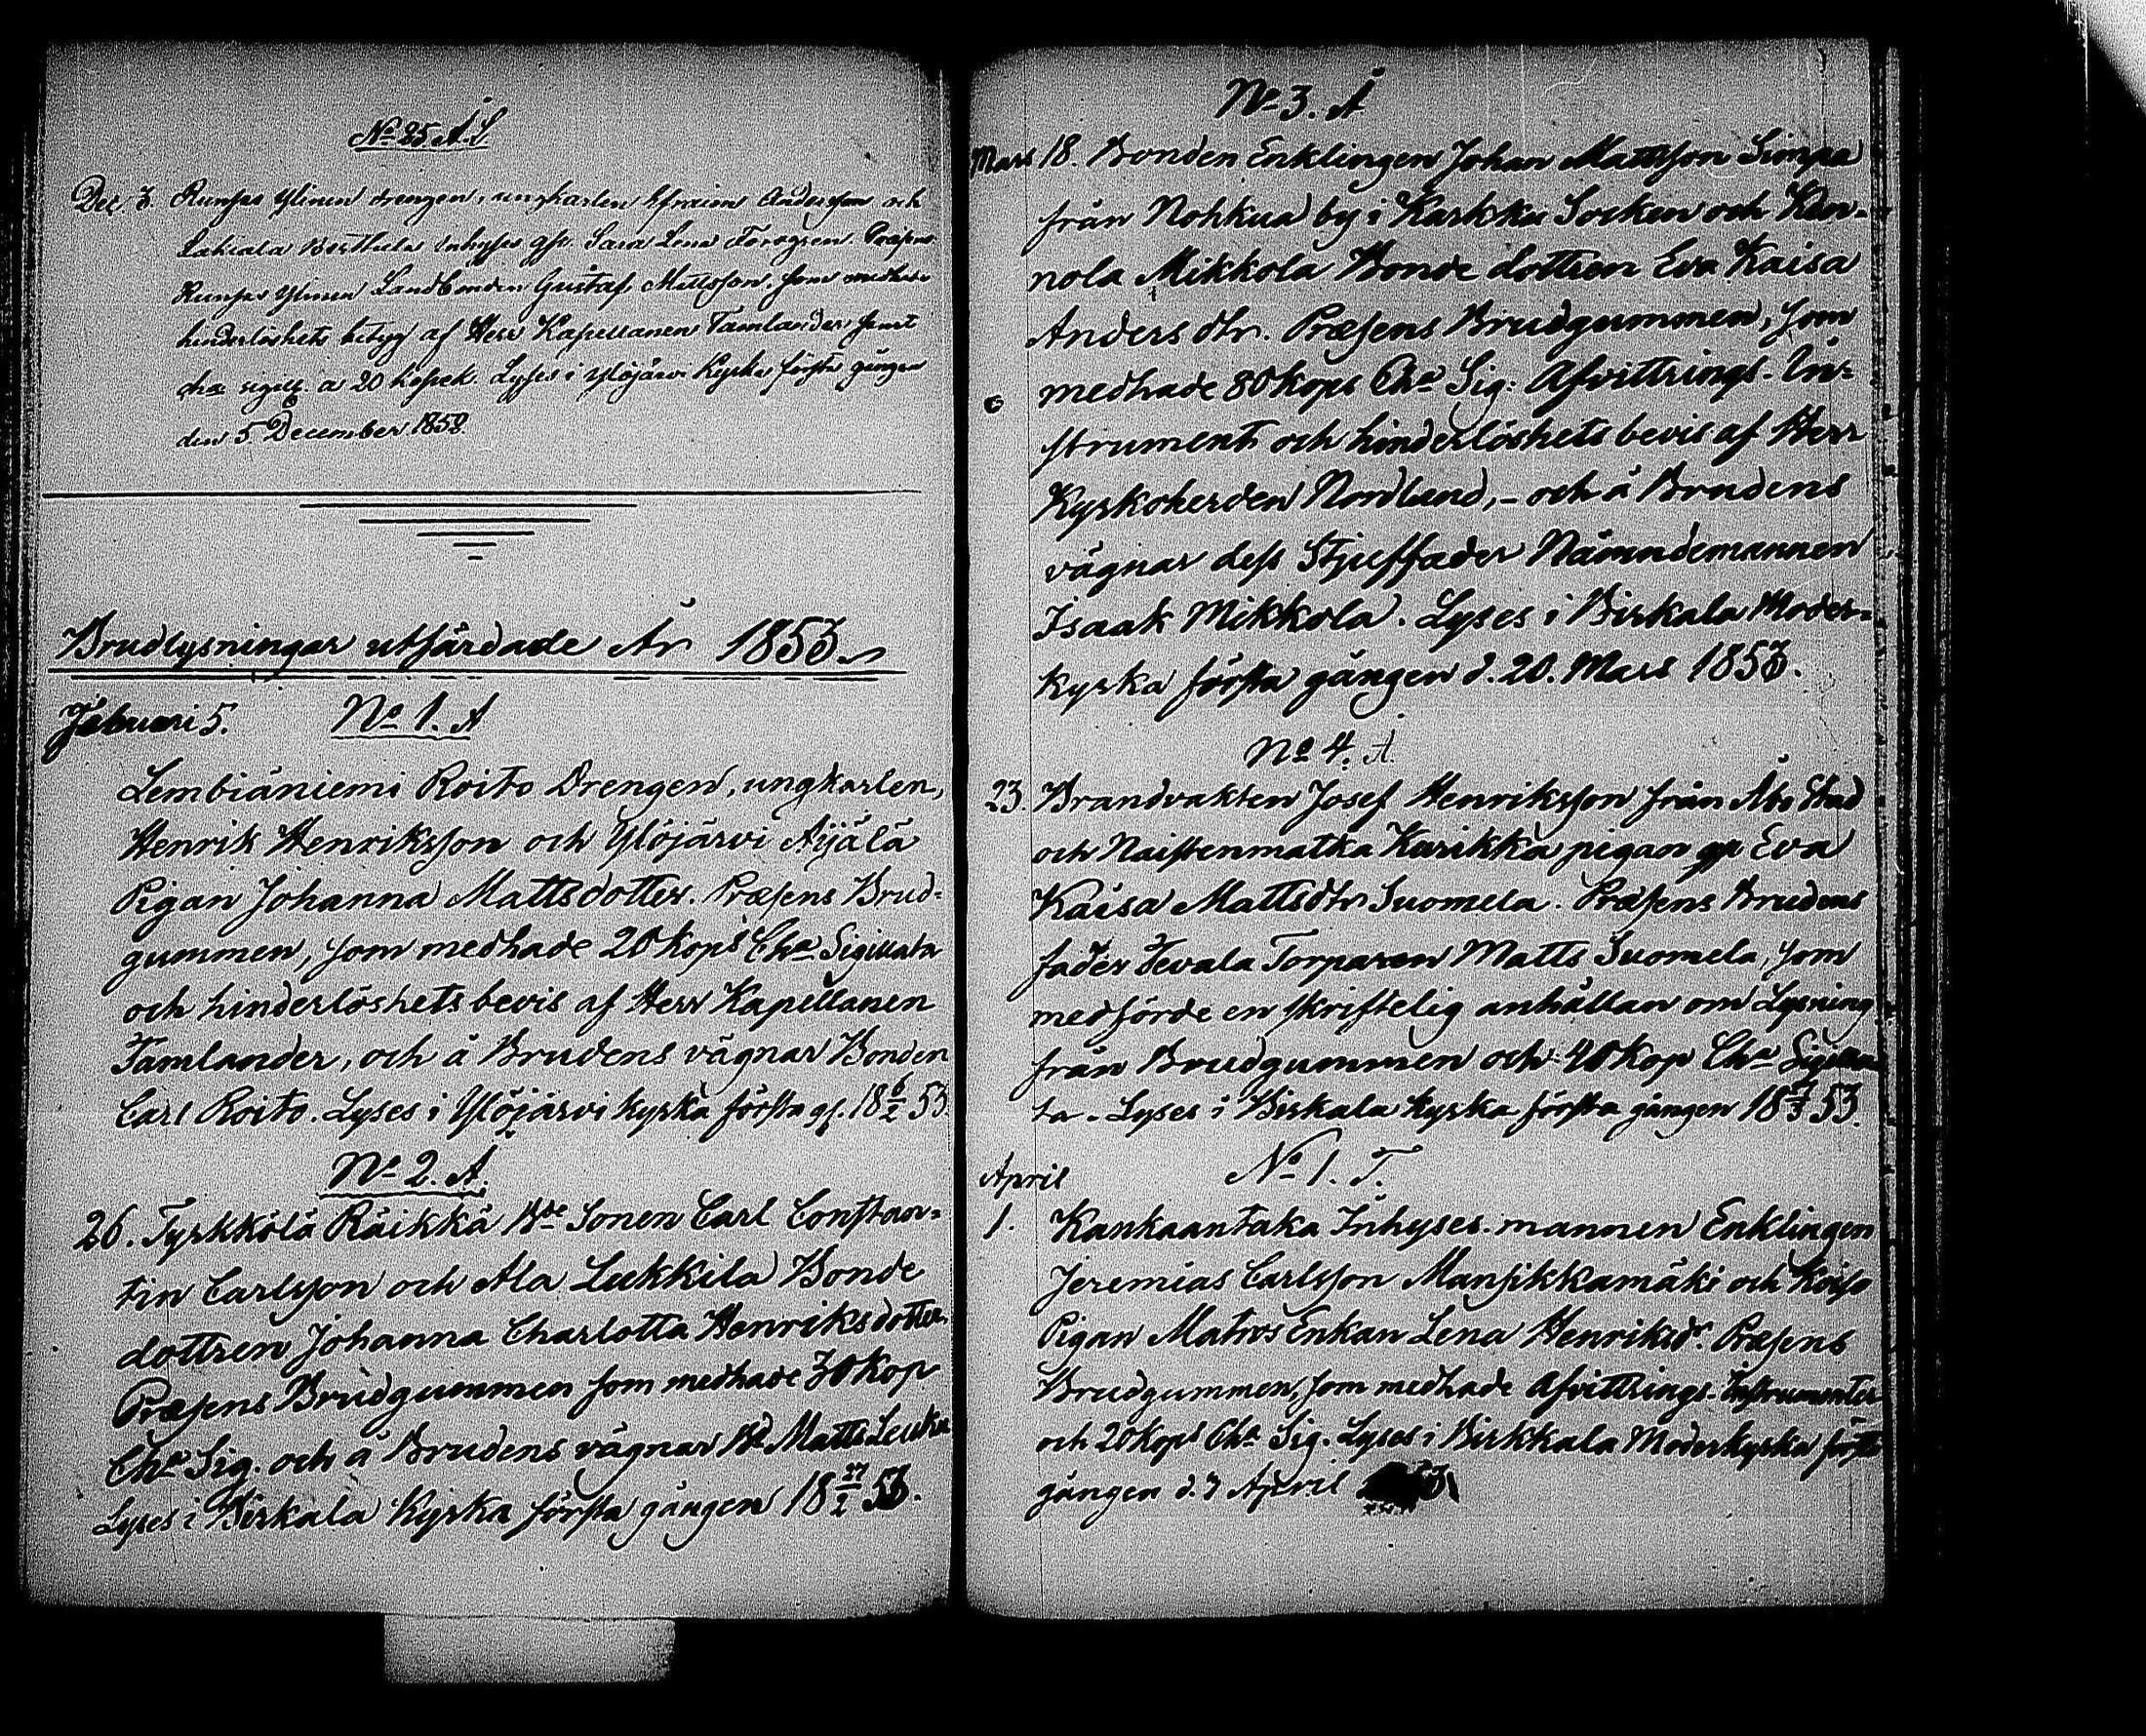 No 25. Å. L
Dec. 3. Runsas Ylinen drengen, ungkarlen Efraim Andersson och
Lakiala Berttula Inhyses qp. Sara Lena Forsgren. Præsens
Runsas Ylinen Landbonden Gustaf Mattsson, som medhade
hinderlöshets betyg af Herr Kapellanen Tamlander samt
cha sigill. a 20 kopek. Lyses i Ylöjärvi Kyrka första gången
den 5 December 1852.
Brudlysningar utfärdade År 1853.
Februari 5. No 1. A
Lembiäniemi Roito Drengen, ungkarlen,
Henrik Henriksson och Ylöjärvi Äijälä
Pigan Johanna Mattsdotter. Præsens Brud-
gummen, som medhade 20 kops Cha Sigillata
och hinderlöshets bevis af Herr Kapellanen
Tamlander, och å Brudens vägnar Bonden
Carl Roito. Lyses i Ylöjärvi Kyrka första gg. 18 6/2 53
No 2. A.
26. Tyrkkölä Räikkä Bde Sonen Carl Constan-
tin Carlsson och Ala Lukkila Bonde
dottren Johanna Charlotta Henriksdotter
Præsens Brudgummen som medhade 30 kop
Cha Sig. och å Brudens vägnar Bd Matts
Lyses i Birkala Kyrka första gången 18 27/2 53.
No 3. A
Mars 18. Bonden Enklingen Johan Mattsson Simpa
från Nohkua by i Karkku Socken och Ken-
nola Mikkola Bonde dottren Eva Kaisa
Anders dtr. Præsens Brudgummen, som
medhade 80 kops Cha Sig: Afvittrings-In-
strument och hinderlöshets bevis af Herr
Kyrkoherden Nordlund, - och å Brudens
vägnar dess Stjuffader Nämndemannen
Isaak Mikkola. Lyses i Birkala Moder-
kyrka första gången d. 20. Mars 1853.
No 4. A.
23. Brandvakten Josef Henriksson från Åbo Stad
och Naistenmatka Karikka pigan qp Eva
Kaisa Mattsdtr Suomela. Præsens Brudens
fader Tevala Torparen Matts Suomela, som
medförde en skriftelig anhållan om Lysning
från Brudgummen och 40 kop Cha Sigilla
ta. Lyses i Birkala kyrka första gången 18 53.
April No 1. T.
1. Kankaantaka Inhyses-mannen Enklingen
Jeremias Carlsson Mansikkamäki och Koiso
Pigan Matros Enkan Lena Henriksdr. Præsens
Brudgummen, som medhade Afvittrings-Instrumenter
och 20 kops Cha Sig. Lyses i Birkkala Moderkyrka förs
gången d. 3 April